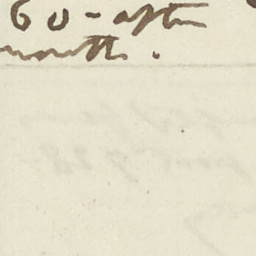 60 - after
month.